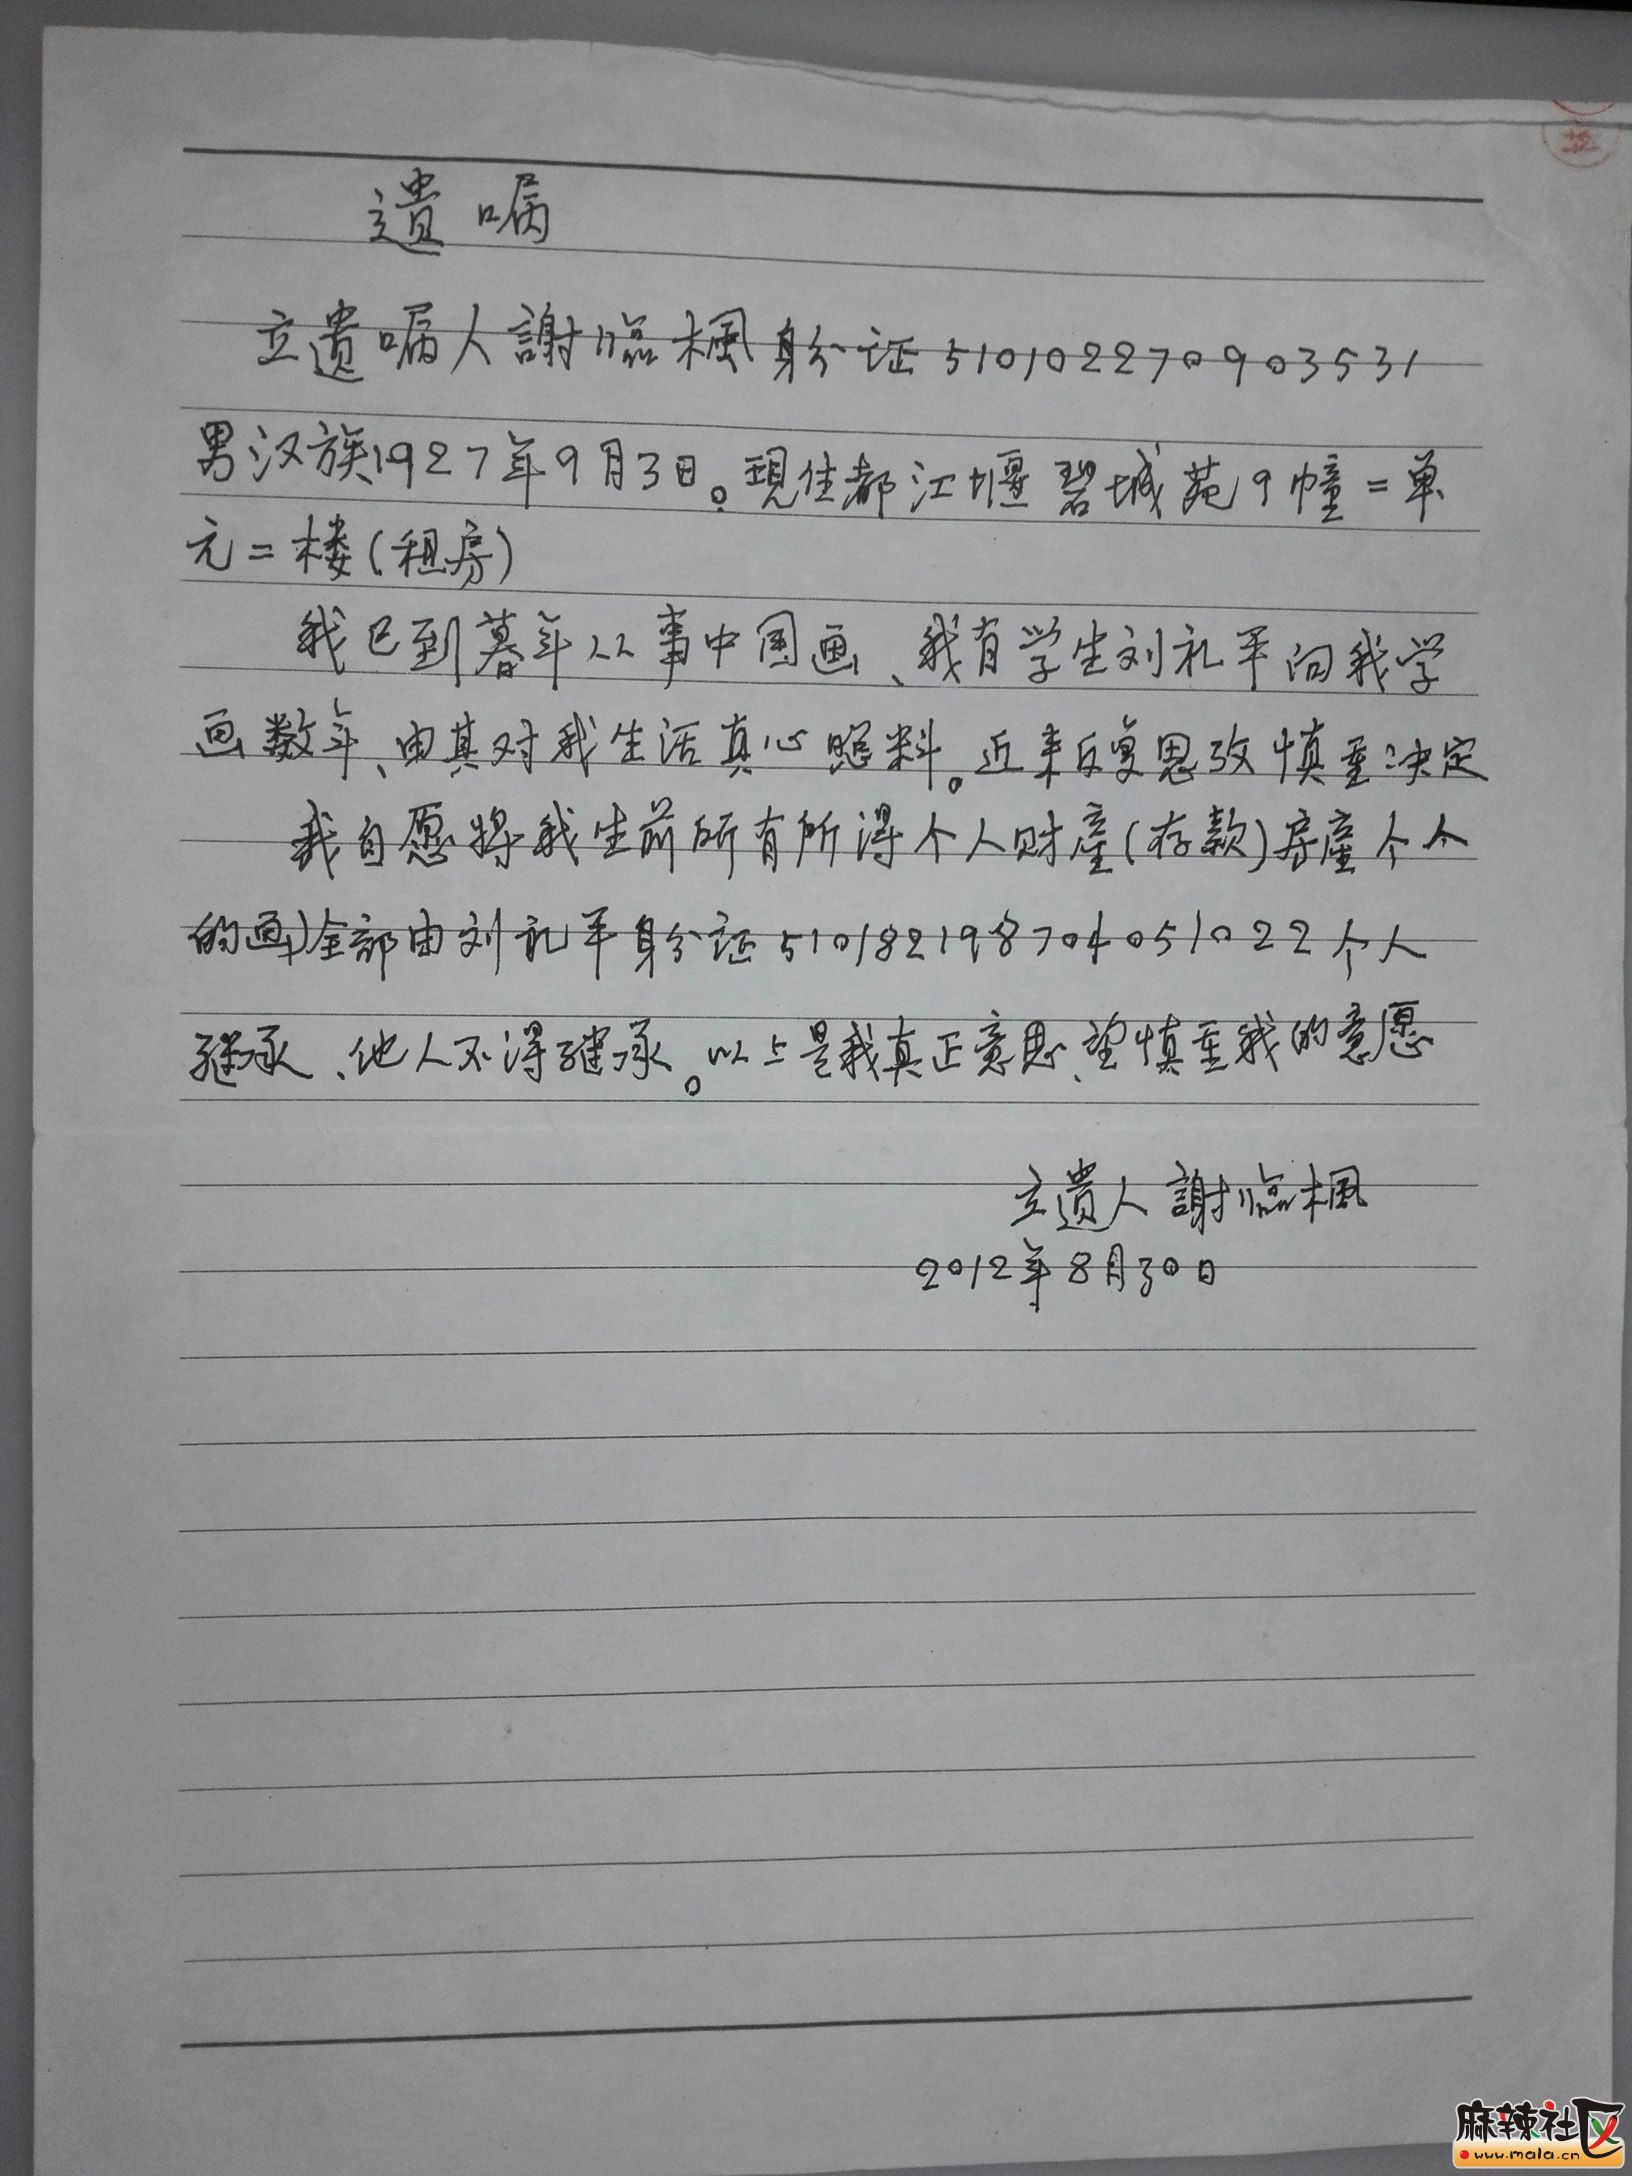 遺嘱
立遗嘱人謝临楓身分证510102270903531
男汉族1927年9月3日。現住都江堰碧城苑9幢二单
元二楼(租房)
我已到暮年从事中国画、我有学生刘礼平向我学
画数年、由其对我生活真心照料。近来反复思考慎重决定
我自愿将我生前所有所得个人财産(存款)房産个个
的画)全部由刘礼平身分证510182198704051022个人
继承、他人不得继承。以上是我真正意思、望慎重我的意愿
立遺人謝临楓
2012年8月30日
麻辣社区
www.mala.cn